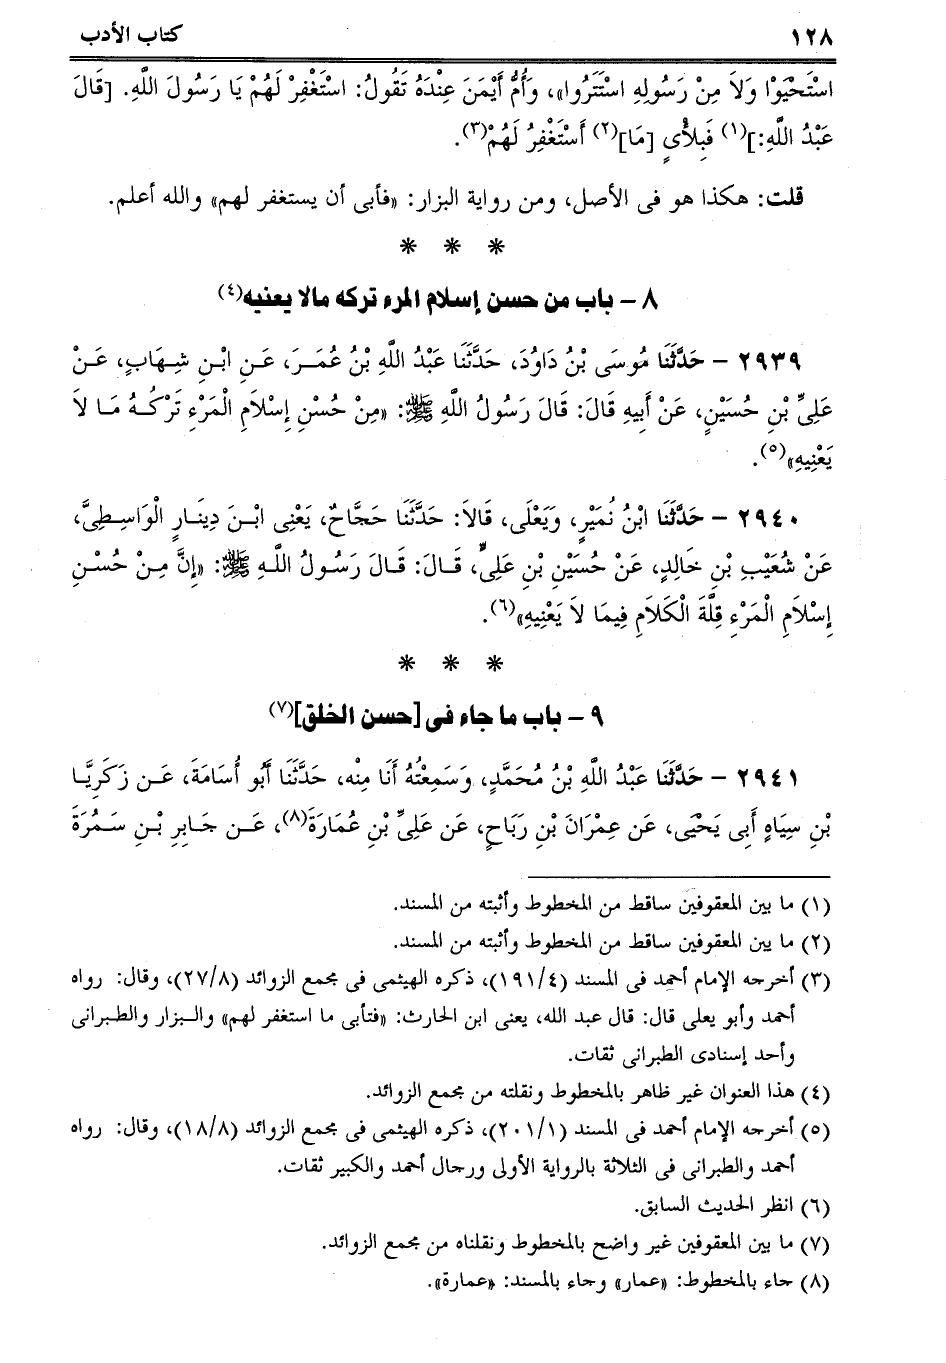 ١٢٨ كتاب الأدب
اسْتَحْيَوْا وَلاَ مِنْ رَسُولِهِ اسْتَتَرُوا»، وَأُمُّ أَيْمَنَ عِنْدَهُ تَقُولُ: اسْتَغْفِرْ لَهُمْ يَا رَسُولَ اللَّهِ. [قَالَ
عَبْدُ اللَّهِ:](١) فَبِلأْيٍ [مَا](٢) أَسْتَغْفِرُ لَهُمْ(٣).
قلت: هكذا هو فى الأصل، ومن رواية البزار: «فأبى أن يستغفر لهم» والله أعلم.
* * *
٨ – باب من حسن إسلام المرء تركه مالا يعنيه(٤)
٢٩٣٩ – حَدَّثَنَا مُوسَى بْنُ دَاوُدَ، حَدَّثَنَا عَبْدُ اللَّهِ بْنُ عُمَرَ، عَنِ ابْنِ شِهَابٍ، عَنْ
عَلِىِّ بْنِ حُسَيْنٍ، عَنْ أَبِيهِ قَالَ: قَالَ رَسُولُ اللَّهِ ﷺ: «مِنْ حُسْنِ إِسْلاَمِ الْمَرْءِ تَرْكُهُ مَا لاَ
يَعْنِيهِ»(٥).
٢٩٤٠ – حَدَّثَنَا ابْنُ نُمَيْرٍ، وَيَعْلَى، قَالاَ: حَدَّثَنَا حَجَّاجٌ، يَعْنِى ابْنَ دِينَارٍ الْوَاسِطِىَّ،
عَنْ شُعَيْبِ بْنِ خَالِدٍ، عَنْ حُسَيْنِ بْنِ عَلِىٍّ، قَالَ: قَالَ رَسُولُ اللَّهِ ﷺ: «إِنَّ مِنْ حُسْنِ
إِسْلاَمِ الْمَرْءِ قِلَّةَ الْكَلاَمِ فِيمَا لاَ يَعْنِيهِ»(٦).
* * *
٩ – باب ما جاء فى [حسن الخلق](٧)
٢٩٤١ – حَدَّثَنَا عَبْدُ اللَّهِ بْنُ مُحَمَّدٍ، وَسَمِعْتُهُ أَنَا مِنْه، حَدَّثَنَا أَبُو أُسَامَةَ، عَن زَكَرِيَّا
بْنِ سِيَاهٍ أَبِى يَحْيَى، عَن عِمْرَانَ بْنِ رَبَاحٍ، عَن عَلِىِّ بْنِ عُمَارَةَ(٨)، عَن جَابِرِ بْنِ سَمُرَةَ
(١) ما بين المعقوفين ساقط من المخطوط وأثبته من المسند.
(٢) ما بين المعقوفين ساقط من المخطوط وأثبته من المسند.
(٣) أخرجه الإمام أحمد فى المسند (١٩١/٤)، ذكره الهيثمى فى مجمع الزوائد (٢٧/٨)، وقال: رواه
أحمد وأبو يعلى قال: قال عبد الله، يعنى ابن الحارث: «فتأبى ما استغفر لهم» والبزار والطبرانى
وأحد إسنادى الطبرانى ثقات.
(٤) هذا العنوان غير ظاهر بالمخطوط ونقلته من مجمع الزوائد.
(٥) أخرجه الإمام أحمد فى المسند (٢٠١/١)، ذكره الهيثمى فى مجمع الزوائد (١٨/٨)، وقال: رواه
أحمد والطبرانى فى الثلاثة بالرواية الأولى ورجال أحمد والكبير ثقات.
(٦) انظر الحديث السابق.
(٧) ما بين المعقوفين غير واضح بالمخطوط ونقلناه من مجمع الزوائد.
(٨) جاء بالمخطوط: «عمار» وجاء بالمسند: «عمارة».